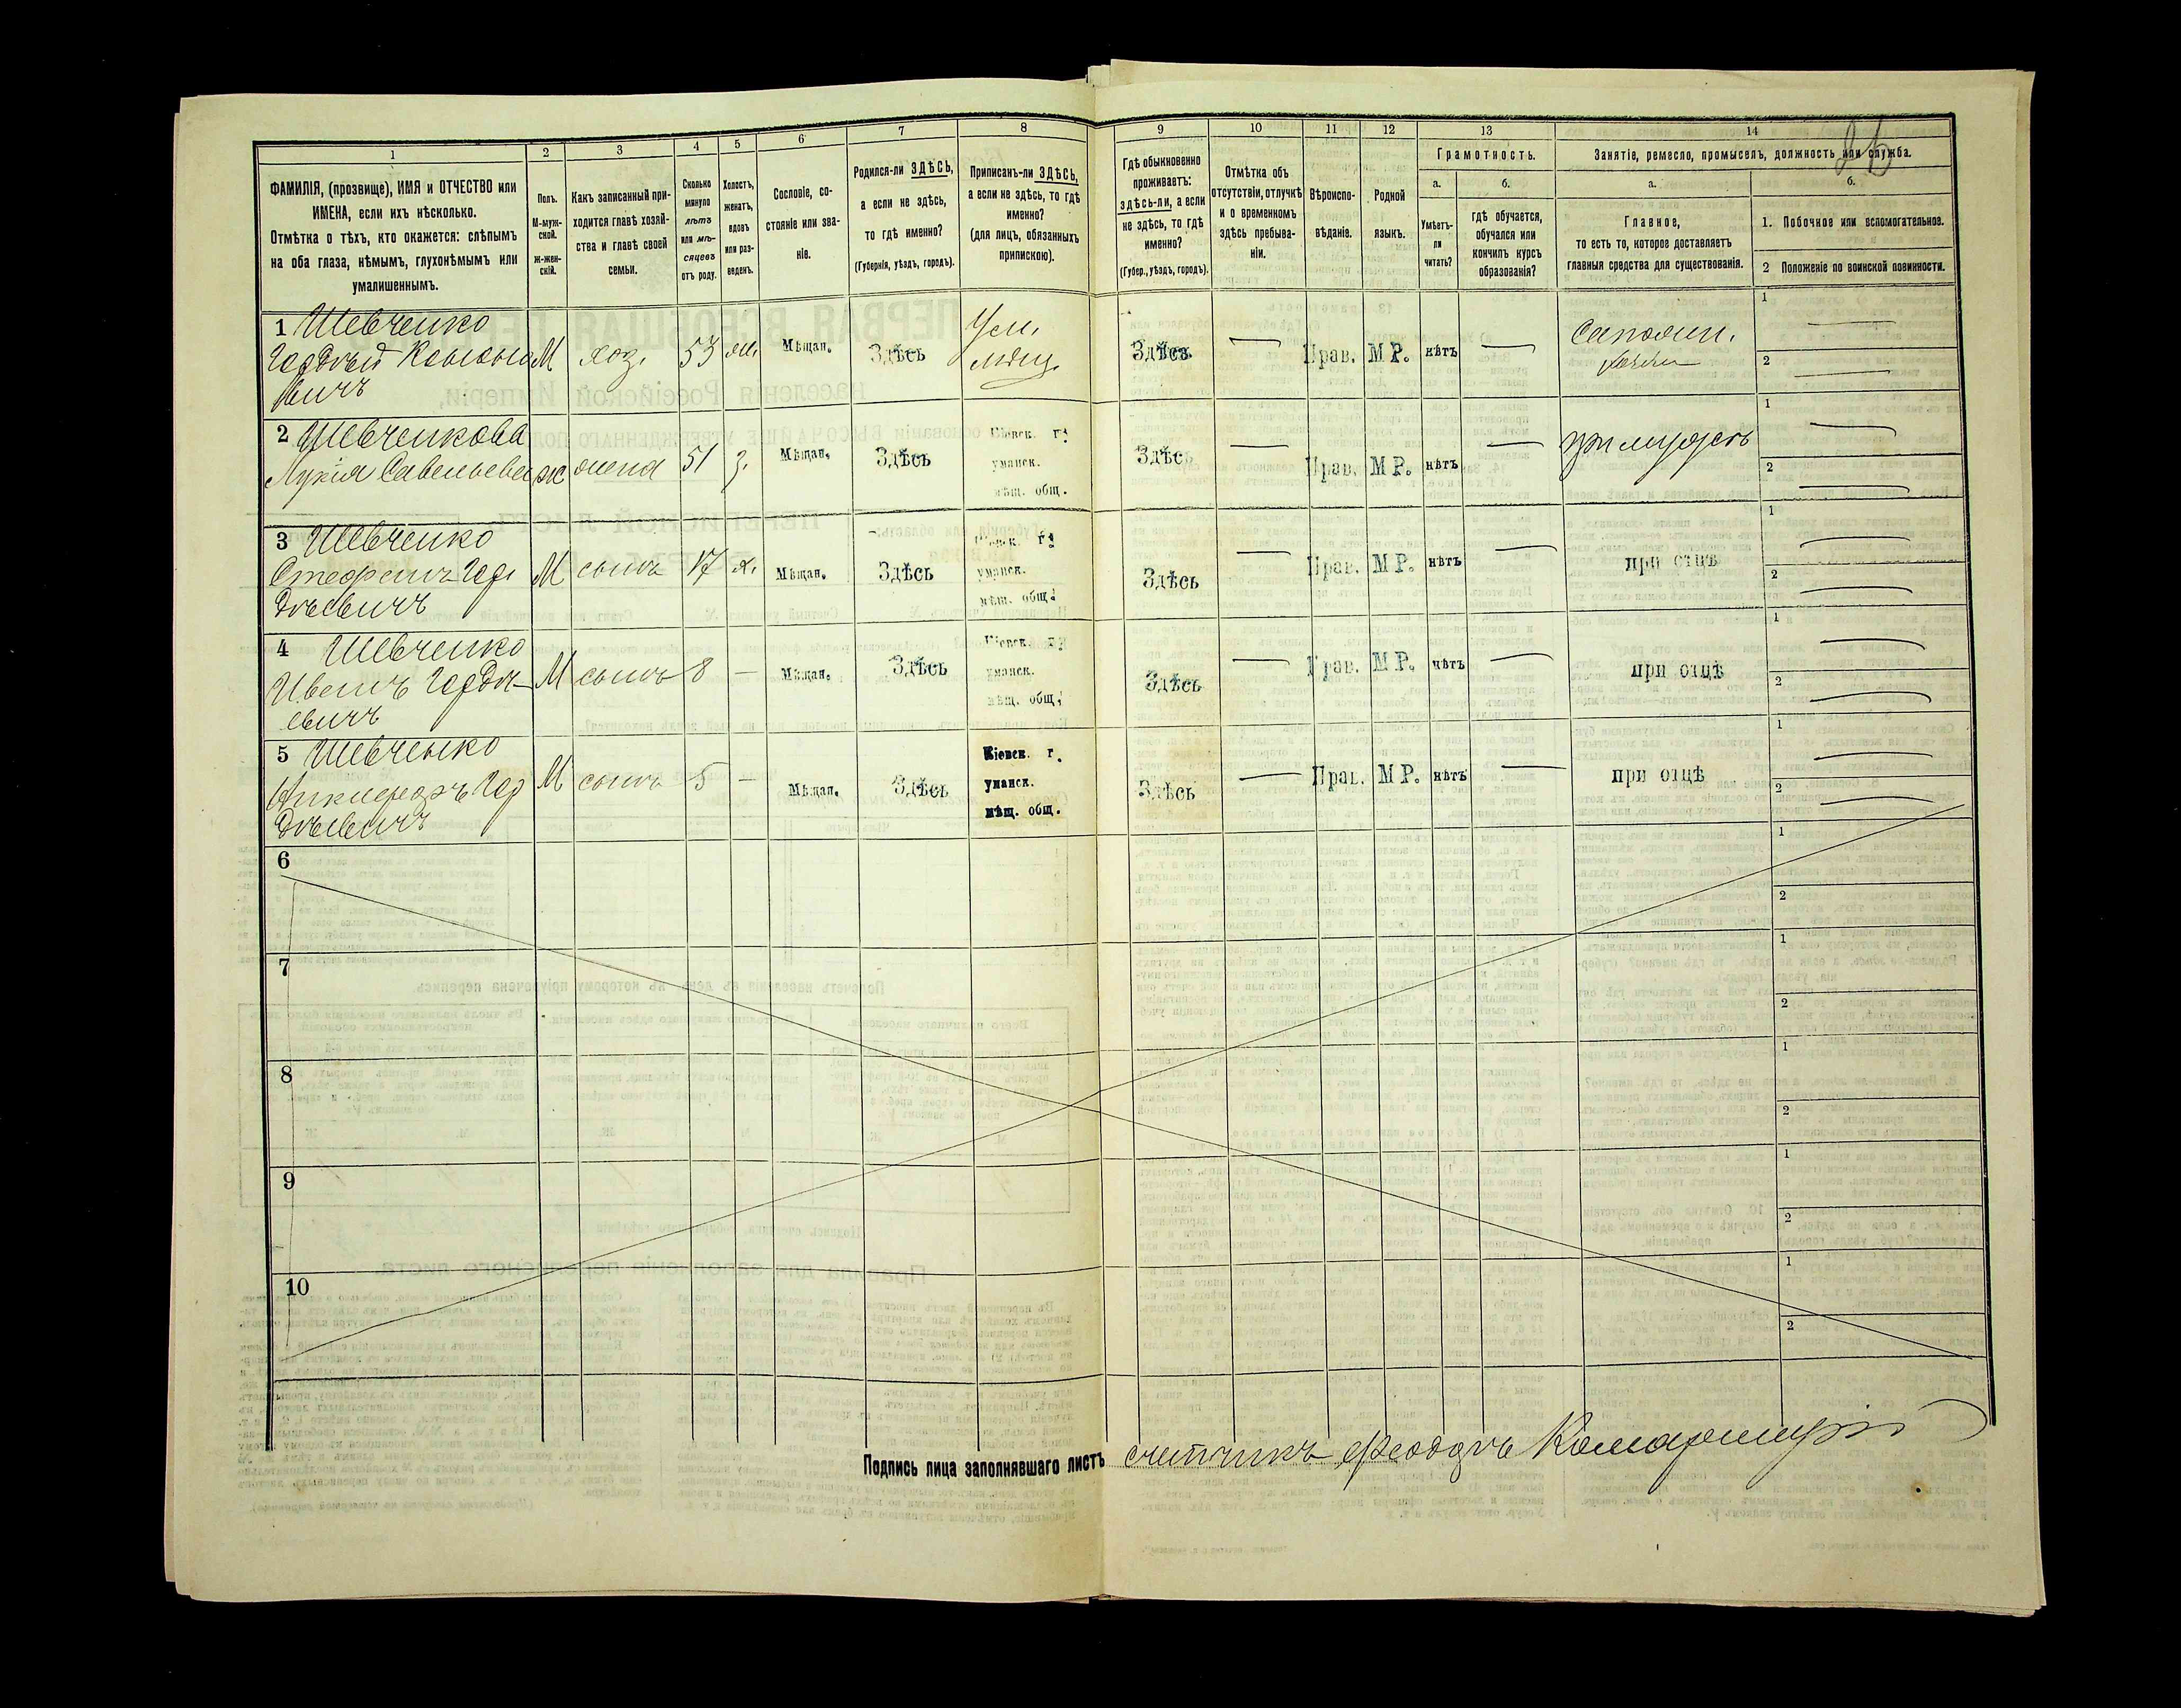 1
2
3
4
5
6
7
8
9
10
11
12
13
14
ФАМИЛІЯ, (прозвище), ИМЯ и ОТЧЕСТВО или
ИМЕНА, если ихъ нѣсколько.
Отмѣтка о тѣхъ, кто окажется: слѣпымъ
на оба глаза, нѣмымъ, глухонѣмымъ или
умалишеннымъ.
Полъ.
М-муж-
ской.
ж-жен-
скій.
Какъ записанный при-
ходится главѣ хозяй-
ства и главѣ своей
семьи.
Сколько
минуло
лѣтъ
или мѣ-
сяцевъ
отъ роду.
Холостъ,
женатъ,
вдовъ
или раз-
веденъ.
Сословіе, со-
стояніе или зва-
ніе.
Родился-ли ЗДѢСЬ,
а если не здѣсь,
то гдѣ именно?
(Губернія, уѣздъ, городъ).
Приписанъ-ли ЗДѢСЬ,
а если не здѣсь, то гдѣ
именно?
(для лицъ, обязанныхъ
припискою).
Гдѣ обыкновенно
проживаетъ:
здѣсь-ли, а если
не здѣсь, то гдѣ
именно?
(Губер., уѣздъ, городъ).
Отмѣтка объ
отсутствіи, отлучкѣ
и о временномъ
здѣсь пребыва-
ніи.
Вѣроиспо-
вѣданіе.
Родной
языкъ.
Грамотность.
а.
Умѣетъ-
ли
читать?
б.
гдѣ обучается,
обучался или
кончилъ курсъ
образованія?
Занятіе, ремесло, промыселъ, должность или служба.
а.
Главное,
то есть то, которое доставляетъ
главныя средства для существованія.
б.
1. Побочное или вспомогательное.
2 Положеніе по воинской повинности.
1 Шевченко
Гордѣй
вичъ
М хоз. 53 ж. Мѣщан. Здѣсь
Ум.
мѣщ.
Здѣсь — Прав. МР. нѣтъ —
Сапожн.
1 —
2 —
2 Шевченкова
Лукія Савельева
ж жена 51 з. Мѣщан. Здѣсь
Кіевск. г.
уманск.
мѣщ. общ.
Здѣсь — Прав. МР. нѣтъ —
при мужѣ
1 —
2 —
3 Шевченко
Стефанъ Гор
дѣевичъ
М сынъ 17 х. Мѣщан. Здѣсь
Кіевск. г.
уманск.
мѣщ. общ.
Здѣсь — Прав. МР. нѣтъ —
при отцѣ
1 —
2 —
4 Шевченко
Иванъ Гордѣ-
евичъ
М сынъ 8 — Мѣщан. Здѣсь
Кіевск. г.
уманск.
мѣщ. общ.
Здѣсь — Прав. МР. нѣтъ —
при отцѣ
1 —
2 —
5 Шевченко
Никифоръ Гор
дѣевичъ
М сынъ 5 — Мѣщан. Здѣсь
Кіевск. г.
уманск.
мѣщ. общ.
Здѣсь — Прав. МР. нѣтъ —
при отцѣ
1 —
2 —
6
1
2
7
1
2
8
1
2
9
1
2
10
1
2
Подпись лица заполнявшаго листъ счетчикъ Феодоръ